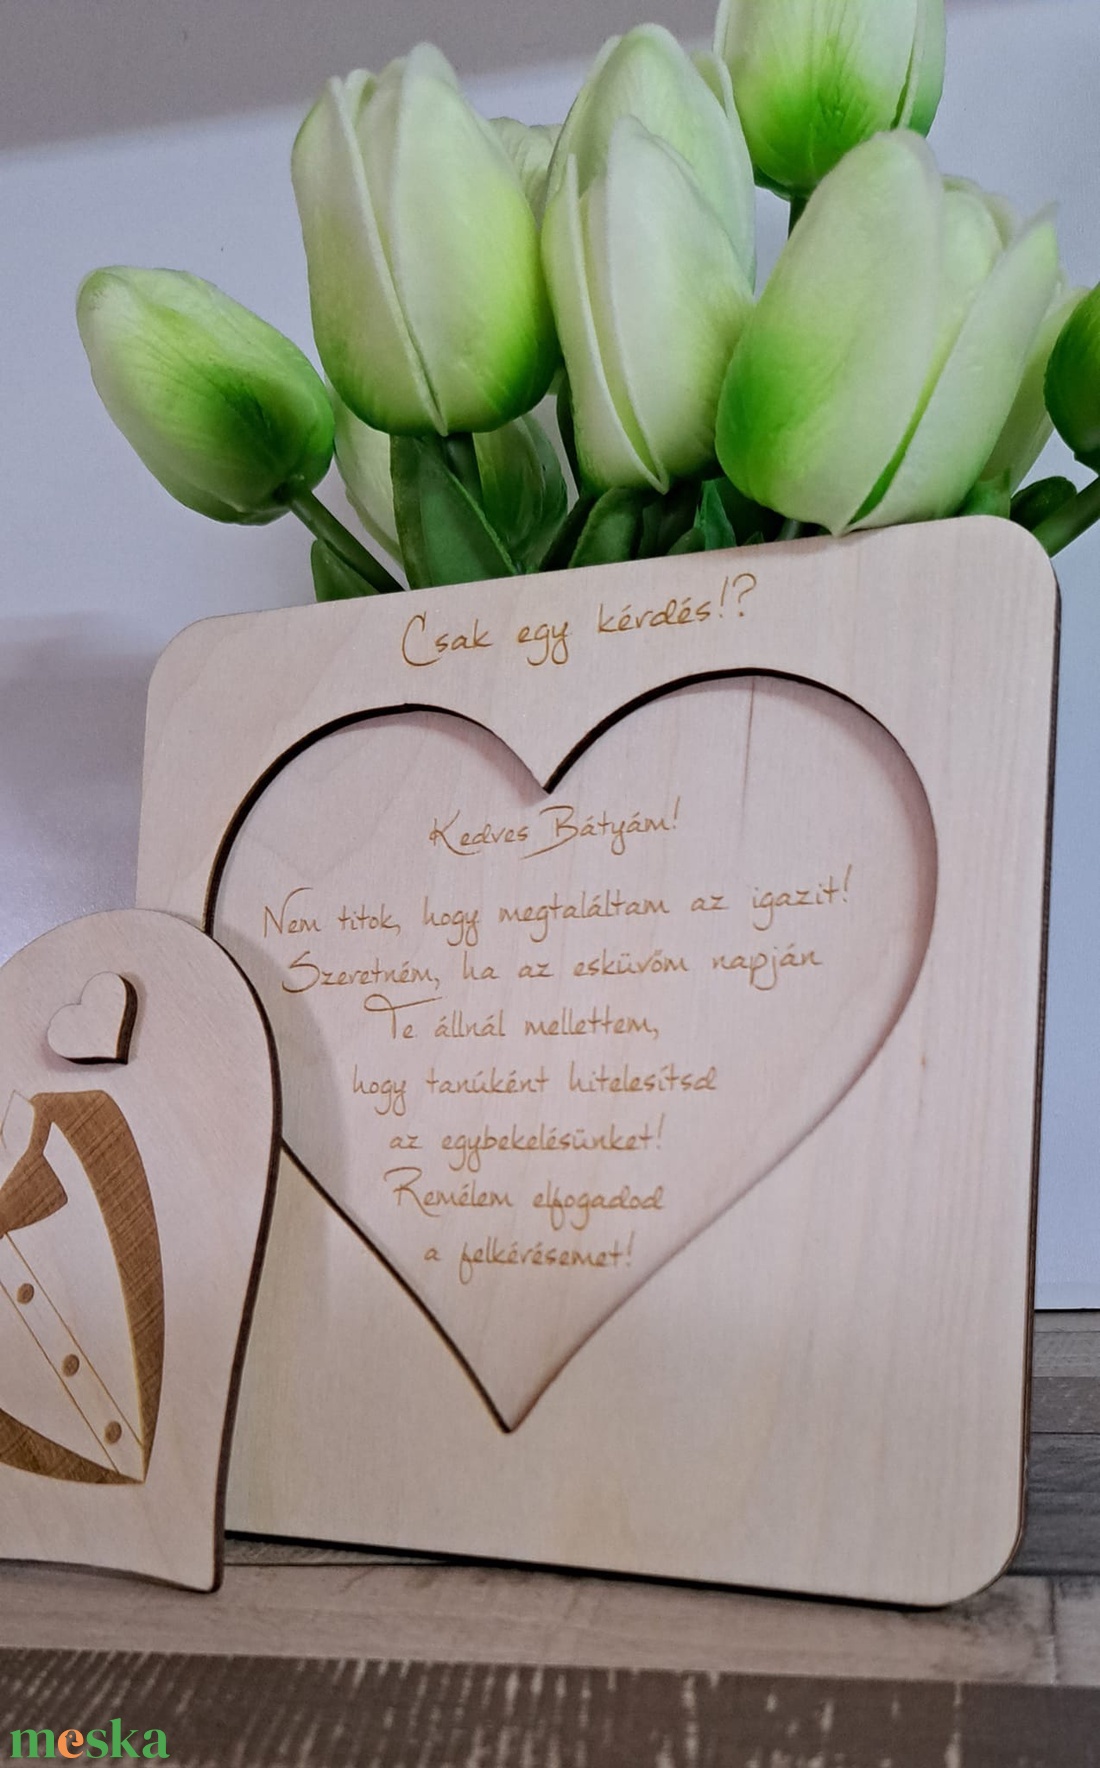 Csak egy kérdés!?
Kedves Bátyám!
Nem titok, hogy megtaláltam az igazit!
Szeretném, ha az esküvőm napján
Te állnál mellettem,
hogy tanúként hitelesítsd
az egybekelésünket!
Remélem elfogadod
a felkérésemet!
meska